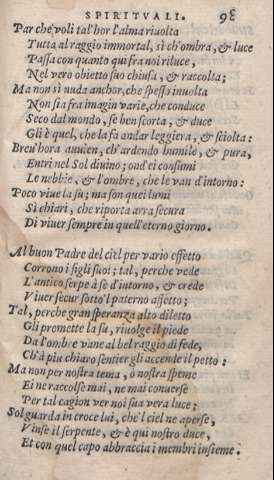 SPIRITVALI. 98
Par che voli tal'hor l'alma riuolta
Tutta al raggio immortal, sì ch'ombra, & luce
Passa con quanto qui fra noi riluce,
Nel vero obietto suo chiusa, & raccolta;
Ma non sì nuda anchor, che spesso inuolta
Non sia fra imagin varie, che conduce
Seco dal mondo, se ben scorta, & duce
Gli è quel, che la fa andar leggiera, & sciolta:
Breu'hora auuien, ch'ardendo humile, & pura,
Entri nel Sol diuino; ond'ei consumi
Le nebbie, & l'ombre, che le van d'intorno:
Poco viue la su; ma son quei lumi
Sì chiari, che riporta arra secura
Di viuer sempre in quell'eterno giorno.
Al buon Padre del ciel per vario effetto
Corrono i figli suoi; tal, perche vede
L'antico serpe à se d'intorno, & crede
Viuer secur sotto'l paterno affetto;
Tal, perche gran speranza alto diletto
Gli promette la sù, riuolge il piede
Da l'ombre vane al bel raggio di fede,
Ch'à piu chiaro sentier gli accende il petto:
Ma non per nostra tema, ò nostra speme
Ei ne raccolse mai, ne mai conuerse
Per tal cagion ver noi sua vera luce;
Sol guarda in croce lui, che'l ciel ne aperse,
Vinse il serpente, & è qui nostro duce,
Et con quel capo abbraccia i membri insieme.